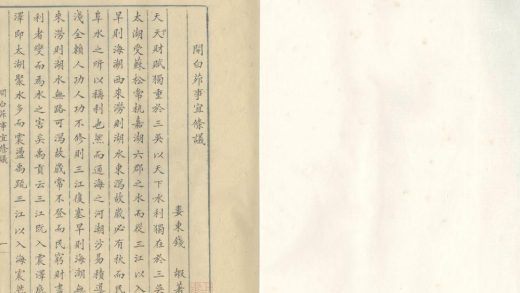 開白茆事宜條議
婁東錢 嘏著
天天財賦獨重於三吳以天下水利獨在於三吳
太湖受蘇松常杭嘉湖六郡之水而從三江以入
旱則海潮西來澇則湖水東瀉故歲必有秋而民
阜水之所以稱利也然而通海之河潮沙易積
淺全賴人功人功不修則三江復塞旱則海潮無
來澇則湖水無路可瀉故歲常不登而民窮財
利者變而為水之害矣禹貢云三江既入震澤底
澤即太湖聚水多而震盪禹疏三江以入海震
開白茆事宜條議
一